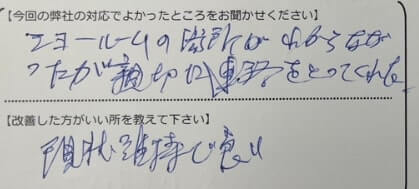 【今回の弊社の対応でよかったところをお聞かせください】
ショールームの場所がわからなか
ったが親切に連絡をとってくれた
【改善した方がいい所を教えて下さい】
現状維持で良い